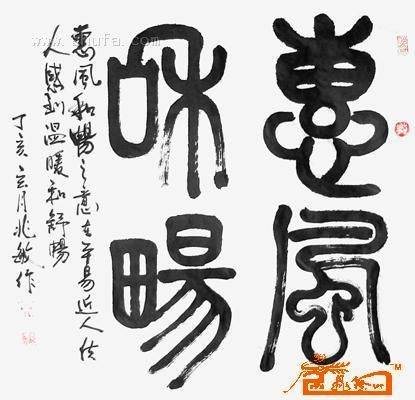 惠風
和暢
惠風和暢之意在平易近人使
人感到温暖和舒暢
丁亥玄月兆敏作